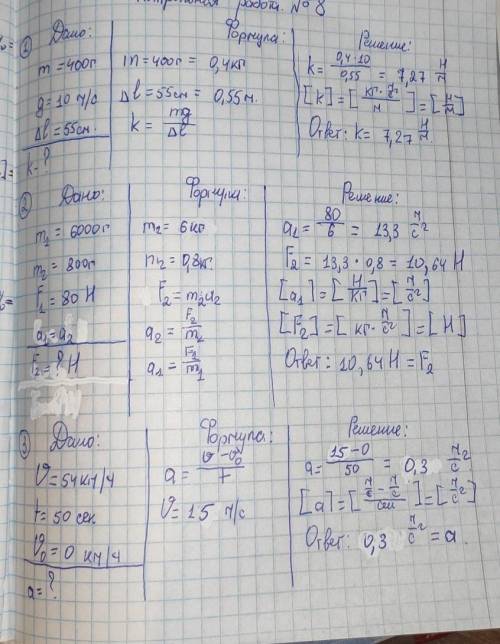 Контрольная работа № 8
① Дано:
m = 400г
g = 10 м/с
Δl = 55см.
k - ?
Формула:
m = 400г = 0,4кг
Δl = 55см = 0,55м.
k = mg/Δl
Решение:
k = 0,4·10/0,55 = 7,27 Н/м
[k] = [ ] = [Н/м]
Ответ: k = 7,27 Н/м
② Дано:
m₁ = 6000г
m₂ = 800г
F₁ = 80 Н
a₁ = a₂
F₂ = ? Н
Формула:
m₂ = 6кг
m₂ = 0,8кг.
F₂ = m₂a₂
a₂ = F₂/m₂
a₁ = F₁/m₁
Решение:
a₁ = 80/6 = 13,3 м/с²
F₂ = 13,3 · 0,8 = 10,64 Н
[a₁] = [Н/кг] = [м/с²]
[F₂] = [кг · м/с²] = [Н]
Ответ: 10,64 Н = F₂
③ Дано:
υ = 54 км/ч
t = 50 сек
υ₀ = 0 км/ч
a = ?
Формула:
a = υ - υ₀/t
υ = 15 м/с
Решение:
a = 15-0/50 = 0,3 м/с²
[a] = [м/с - м/с/сек] = [м/с²]
Ответ: 0,3 м/с² = a.